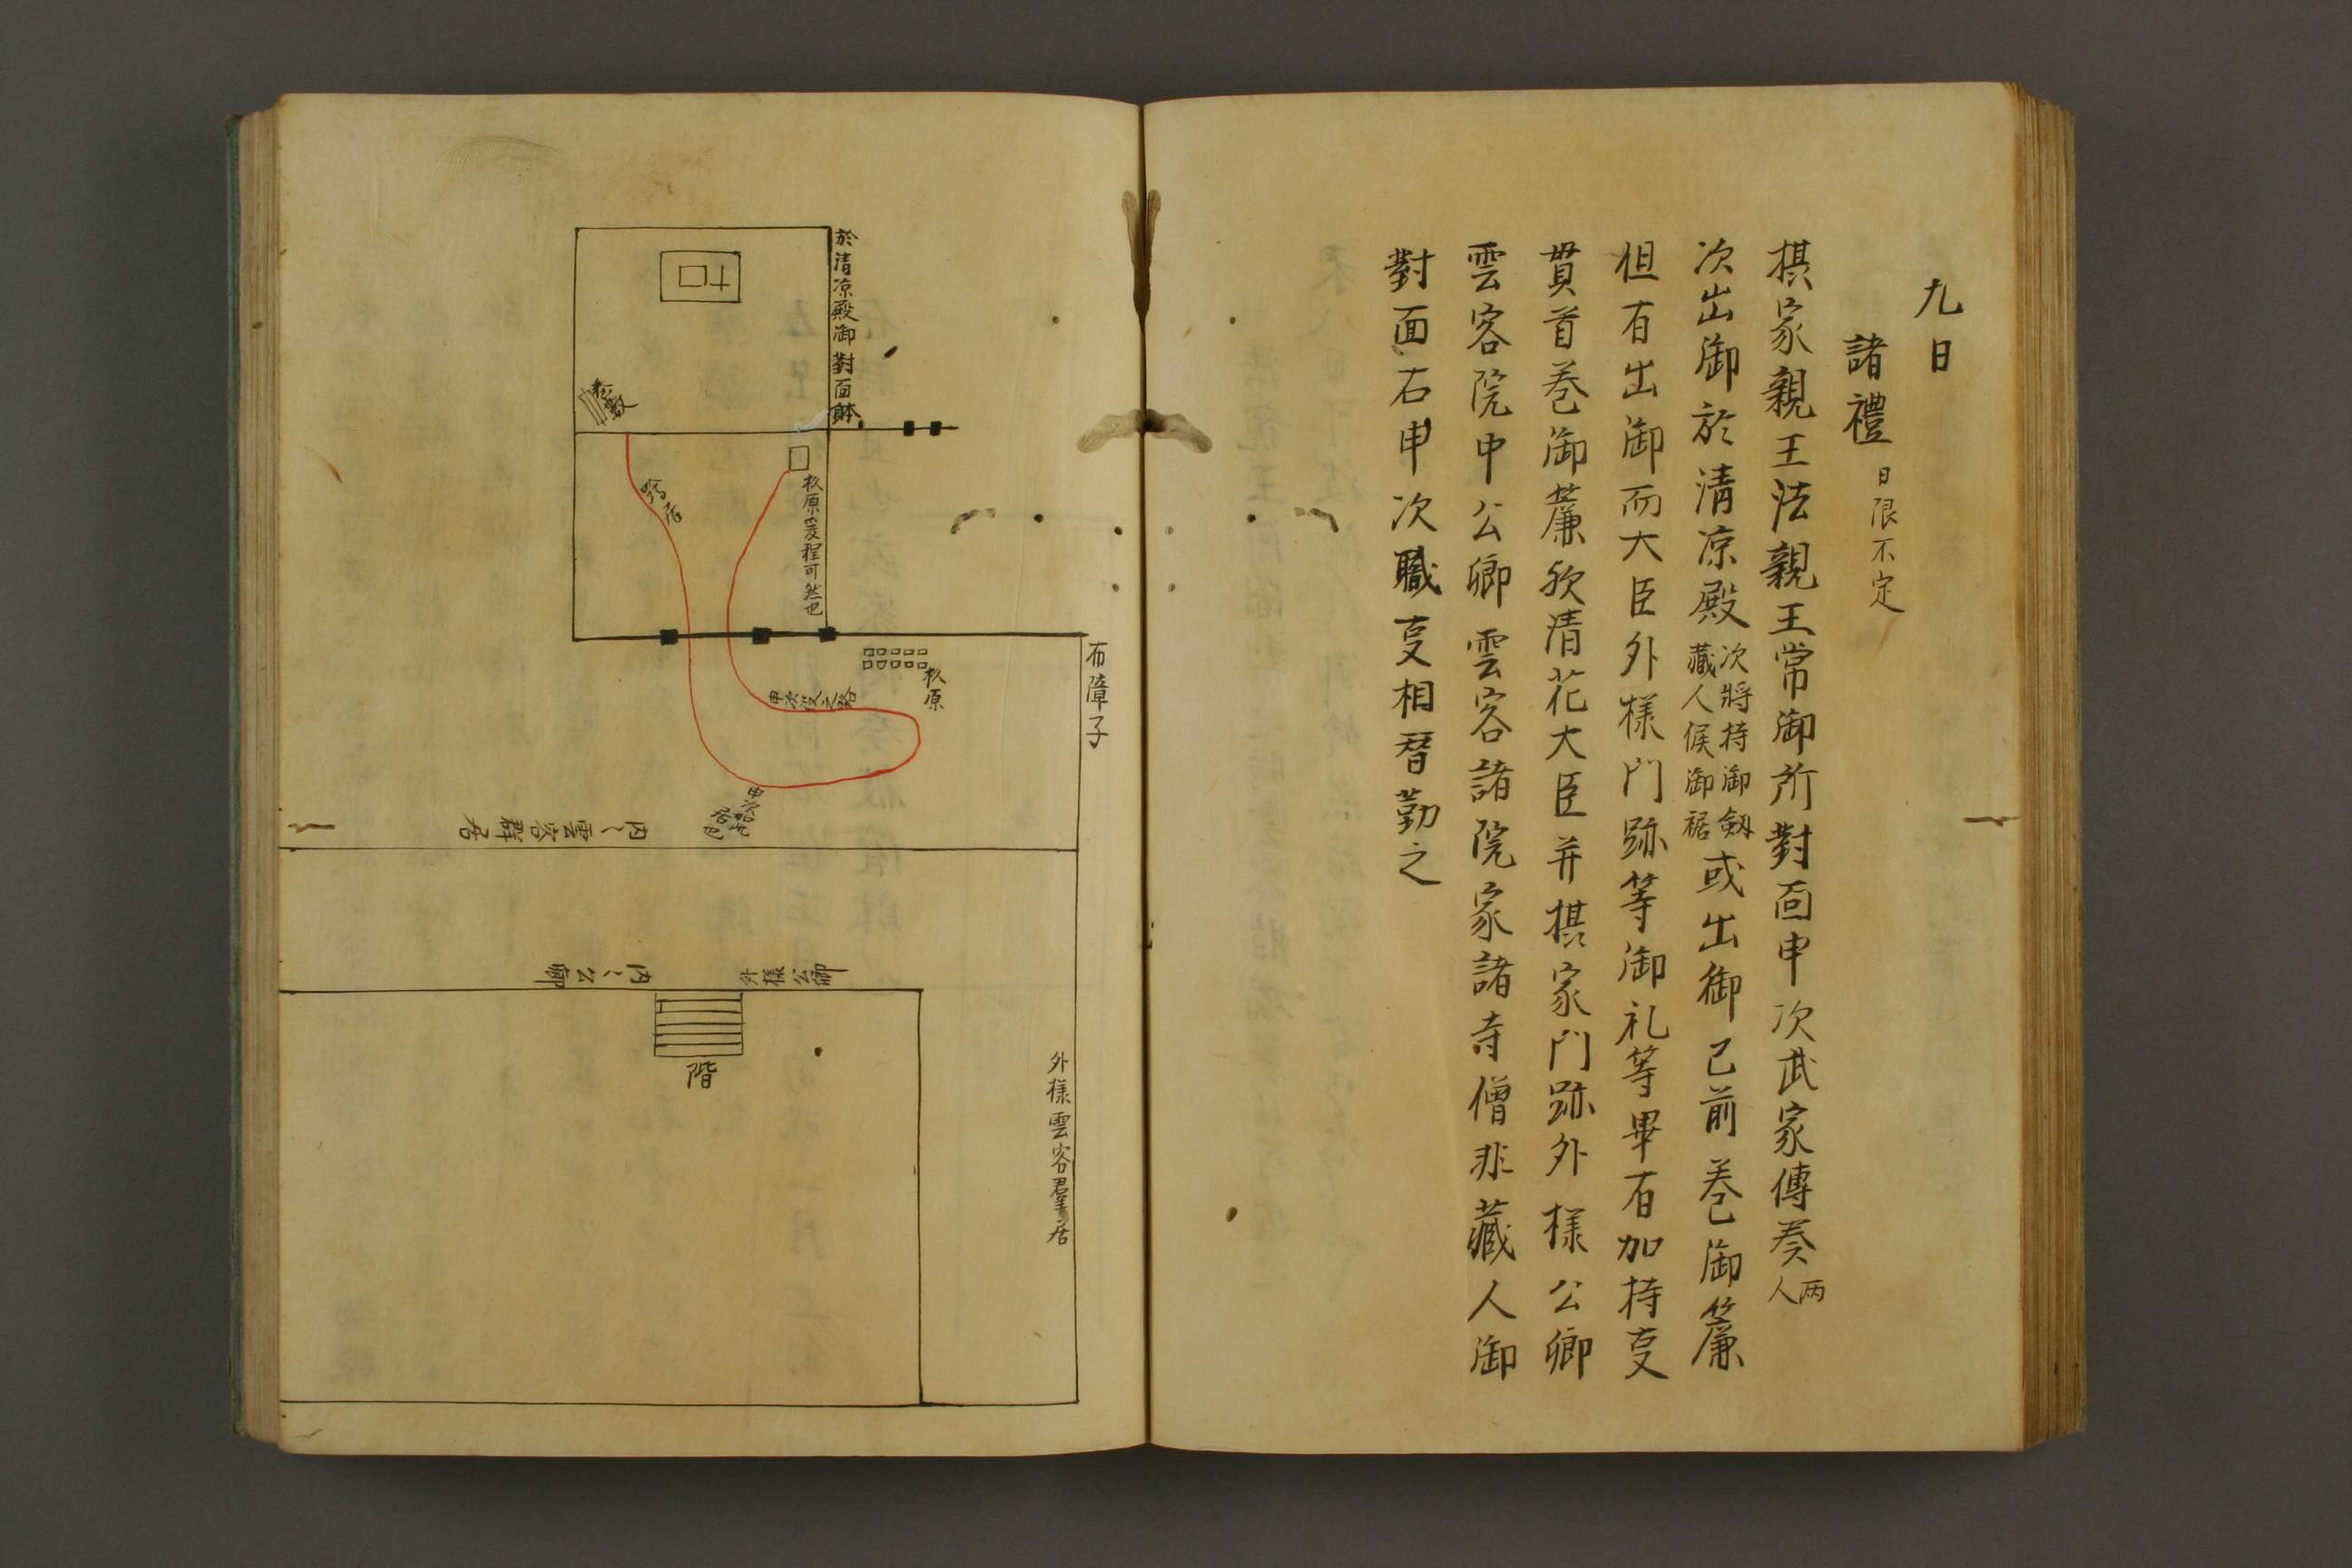 九日
諸禮 日限不定
摂家親王法親王常御所對面申次武家傳奏両人
次出御於清凉殿次將持御劔藏人候御裾或出御已前巻御簾
但有出御而大臣外様門跡等御礼等畢有加持㕝
貫首巻御簾欤清花大臣并摂家門跡外様公卿
雲客院中公卿雲客諸院家諸寺僧非藏人御
對面右申次職㕝相替勤之
於清凉殿御對面躰
杉原置程可然也
杉原
布障子
申次役之路
内〻雲客群居
外様公卿
内〻公卿
階
外様雲客羣居